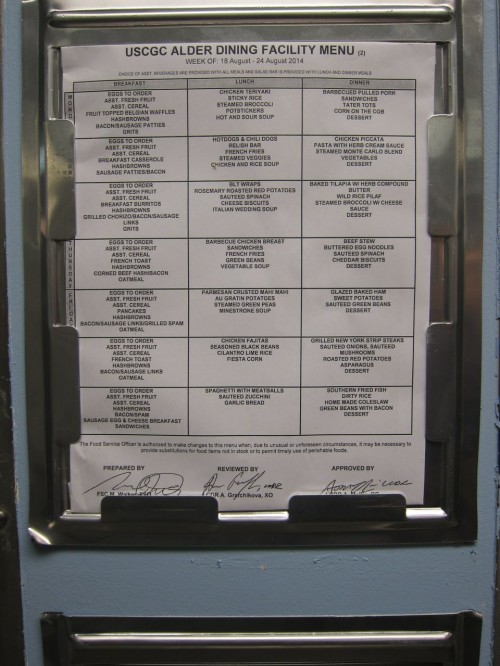 USCGC ALDER DINING FACILITY MENU (2)
WEEK OF: 18 August - 24 August 2014
CHOICE OF ASST. BEVERAGES ARE PROVIDED WITH ALL MEALS AND SALAD BAR IS PROVIDED WITH LUNCH AND DINNER MEALS
BREAKFAST LUNCH DINNER
EGGS TO ORDER
ASST. FRESH FRUIT
ASST. CEREAL
FRUIT TOPPED BELGIAN WAFFLES
HASHBROWNS
BACON/SAUSAGE PATTIES
GRITS
CHICKEN TERIYAKI
STICKY RICE
STEAMED BROCCOLI
POTSTICKERS
HOT AND SOUR SOUP
BARBECUED PULLED PORK
SANDWICHES
TATER TOTS
CORN ON THE COB
DESSERT
EGGS TO ORDER
ASST. FRESH FRUIT
ASST. CEREAL
BREAKFAST CASSEROLE
HASHBROWNS
SAUSAGE PATTIES/BACON
HOTDOGS & CHILI DOGS
RELISH BAR
FRENCH FRIES
STEAMED VEGGIES
CHICKEN AND RICE SOUP
CHICKEN PICCATA
PASTA WITH HERB CREAM SAUCE
STEAMED MONTE CARLO BLEND
VEGETABLES
DESSERT
EGGS TO ORDER
ASST. FRESH FRUIT
ASST. CEREAL
BREAKFAST BURRITOS
HASHBROWNS
GRILLED CHORIZO/BACON/SAUSAGE
LINKS
GRITS
BLT WRAPS
ROSEMARY ROASTED RED POTATOES
SAUTEED SPINACH
CHEESE BISCUITS
ITALIAN WEDDING SOUP
BAKED TILAPIA W/ HERB COMPOUND
BUTTER
WILD RICE PILAF
STEAMED BROCCOLI W/ CHEESE
SAUCE
DESSERT
THURSDAY
EGGS TO ORDER
ASST. FRESH FRUIT
ASST. CEREAL
FRENCH TOAST
HASHBROWNS
CORNED BEEF HASH/BACON
OATMEAL
BARBECUE CHICKEN BREAST
SANDWICHES
FRENCH FRIES
GREEN BEANS
VEGETABLE SOUP
BEEF STEW
BUTTERED EGG NOODLES
SAUTEED SPINACH
CHEDDAR BISCUITS
DESSERT
EGGS TO ORDER
ASST. FRESH FRUIT
ASST. CEREAL
PANCAKES
HASHBROWNS
BACON/SAUSAGE LINKS/GRILLED SPAM
OATMEAL
PARMESAN CRUSTED MAHI MAHI
AU GRATIN POTATOES
STEAMED GREEN PEAS
MINESTRONE SOUP
GLAZED BAKED HAM
SWEET POTATOES
SAUTEED GREEN BEANS
DESSERT
EGGS TO ORDER
ASST. FRESH FRUIT
ASST. CEREAL
FRENCH TOAST
HASHBROWNS
BACON/SAUSAGE LINKS
OATMEAL
CHICKEN FAJITAS
SEASONED BLACK BEANS
CILANTRO LIME RICE
FIESTA CORN
GRILLED NEW YORK STRIP STEAKS
SAUTEED ONIONS, SAUTEED
MUSHROOMS
ROASTED RED POTATOES
ASPARAGUS
DESSERT
EGGS TO ORDER
ASST. FRESH FRUIT
ASST. CEREAL
HASHBROWNS
BACON/SPAM
SAUSAGE EGG & CHEESE BREAKFAST
SANDWICHES
SPAGHETTI WITH MEATBALLS
SAUTEED ZUCCHINI
GARLIC BREAD
SOUTHERN FRIED FISH
DIRTY RICE
HOME MADE COLESLAW
GREEN BEANS WITH BACON
DESSERT
The Food Service Officer is authorized to make changes to this menu when, due to unusual or unforeseen circumstances, it may be necessary to
provide substitutions for food items not in stock or to permit timely use of perishable foods.
PREPARED BY REVIEWED BY APPROVED BY
A. Gratchikova, XO